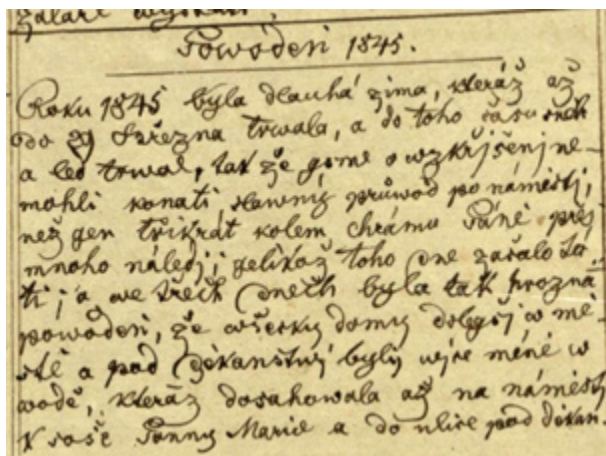 žaláře
Powódeń 1845.
Roku 1845 byla dlauhá zima, kteráž až
do 29 Března trwala, a do toho času sněh
a led trwal, tak že gsme o wzkřjšenj ne-
mohli konati slawný průwod po náměstj,
než gen třikrát kolem chrámu Páně přes
mnoho náledj; gelikož toho dne začalo tá-
ti; a we třech dnech byla tak hrozná
powódeń, že wšecky domy dolegšj w mě-
stě a pod děkanstwj byly wjce méně w
wodě, kteráž dosahowala až na náměstj
k soše Panny Marie a do ulice pod děkan.